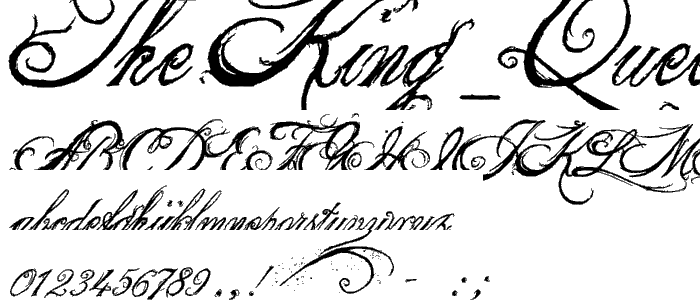 The King_Quee
ABCDEFGHIJKLM
abcdefghijklmnopqrstuvwxyz
0123456789.,! - :;